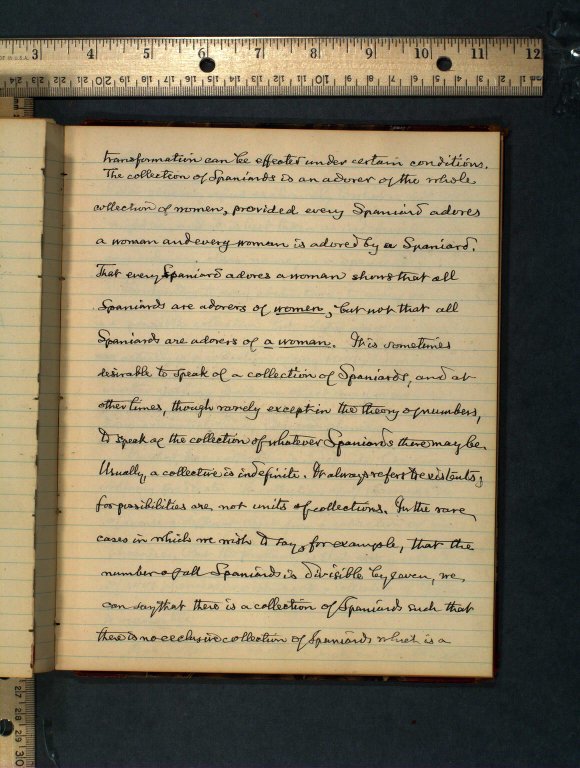 3 4 5 6 7 8 9 10 11 12
transformation can be effected under certain conditions.
The collection of Spaniards is an adorer of the whole
collection of women, provided every Spaniard adores
a woman and every woman is adored by a Spaniard.
That every Spaniard adores a woman shows that all
Spaniards are adorers of women, but not that all
Spaniards are adorers of a woman. It is sometimes
desirable to speak of a collection of Spaniards, and at
other times, though rarely except in the theory of numbers,
to speak of the collection of whatever Spaniards there may be.
Usually, a collective is indefinite. It always refers to existents;
for possibilities are not units of collections. In the rare
cases in which we wish to say, for example, that the
number of all Spaniards is divisible by seven, we
can say that there is a collection of Spaniards such that
there is no exclusive collection of Spaniards which is a